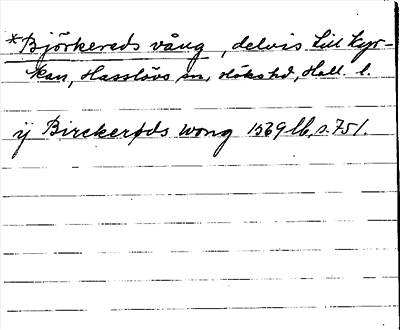 *Björkereds vång, delvis till Kyr-
kan, Hasslövs sn, Höks hd, Hall. l.
ij Birckerøds wong 1569 lb, s. 751.